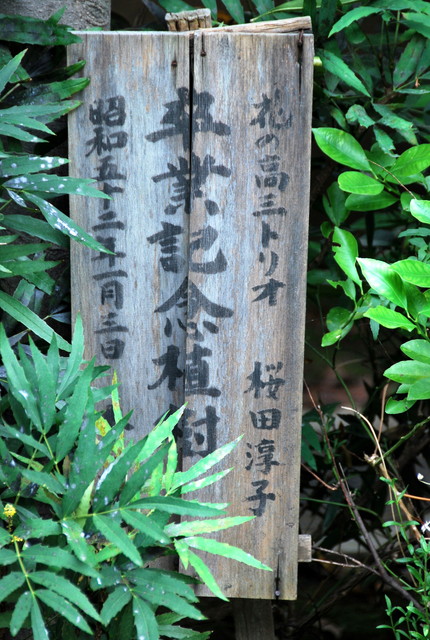 花の高三トリオ 桜田淳子
卒業記念植樹
昭和五十二年一月三日